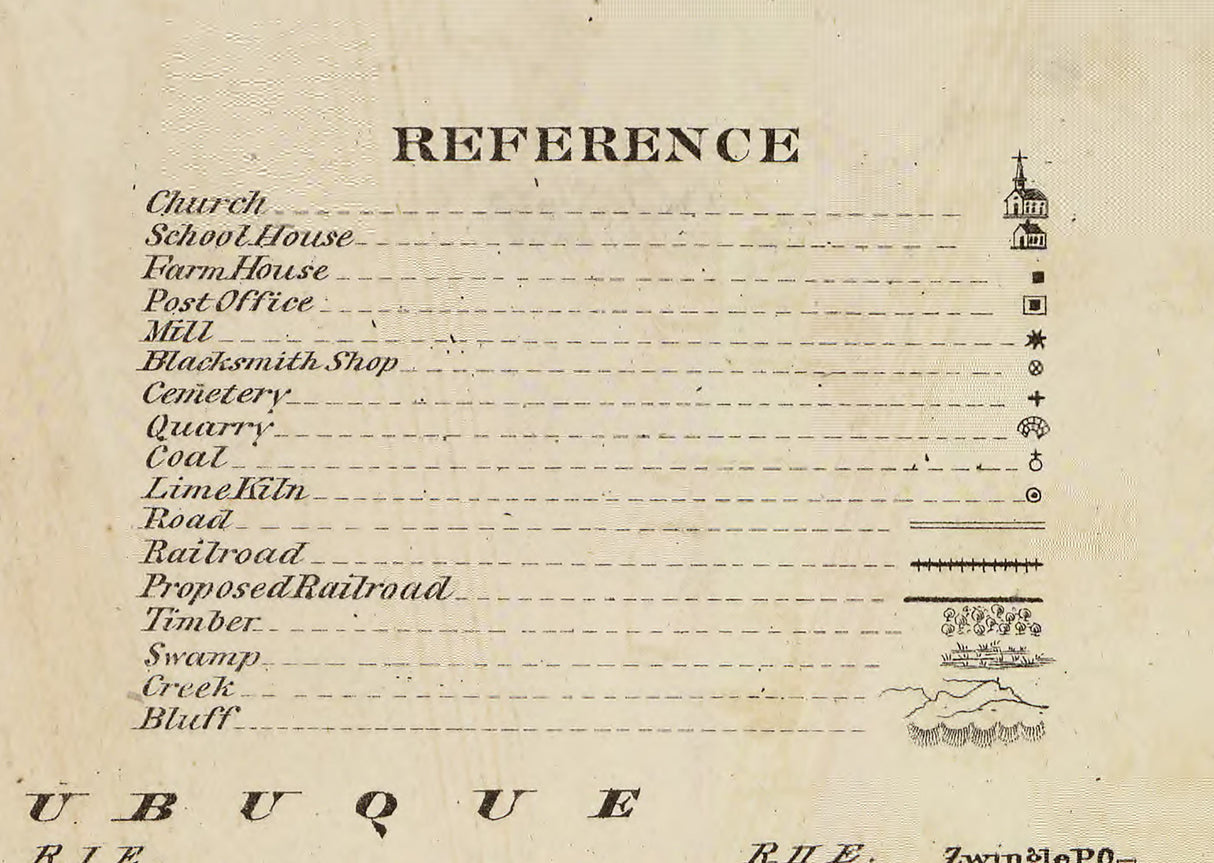 REFERENCE
Church
School House
Farm House
Post Office
Mill
Blacksmith Shop
Cemetery
Quarry
Coal
Lime Kiln
Road
Railroad
Proposed Railroad
Timber
Swamp
Creek
Bluff
U B U Q U E
R I E. R II E. Zwingle P.O.